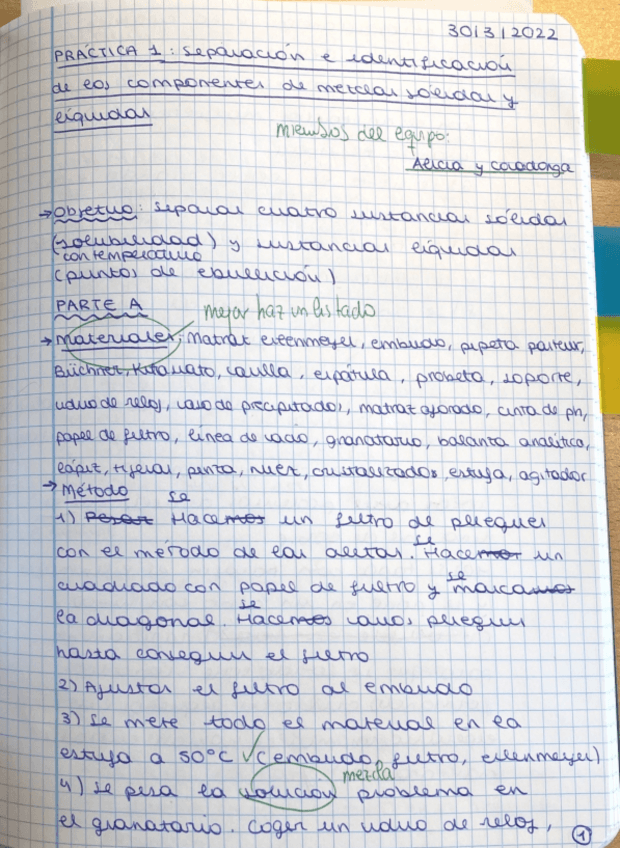 30/3/2022
PRÁCTICA 1: separación e identificación
de los componentes de mezclas sólidas y
líquidas
miembros del equipo:
Alicia y
→ Objetivo: separar cuatro sustancias sólidas
(solubilidad) y sustancias líquidas
con temperatura
(puntos de ebullición)
PARTE A
mejor haz un listado
→ Materiales: Matraz erlenmeyer, embudo, pipeta pasteur,
Büchner, Kitasato, varilla, espátula, probeta, soporte,
vidrio de reloj, vaso de precipitados, matraz aforado, cinta de ph,
papel de filtro, línea de vacío, granatario, balanza analítica,
lápiz, tijeras, pinza, nuez, cristalizador, estufa, agitador
→ Método
se
1) Pesar Hacemos un filtro de pliegues
con el método de las aletas. se Hacemos un
cuadrado con papel de filtro y se marcamos
la diagonal. se Hacemos varios pliegues
hasta conseguir el filtro
2) Ajustar el filtro al embudo
3) Se mete todo el material en la
estufa a 50°C (embudo, filtro, erlenmeyer)
mezcla
4) Se pesa la solución problema en
el granatario. Coger un vidrio de reloj,
1